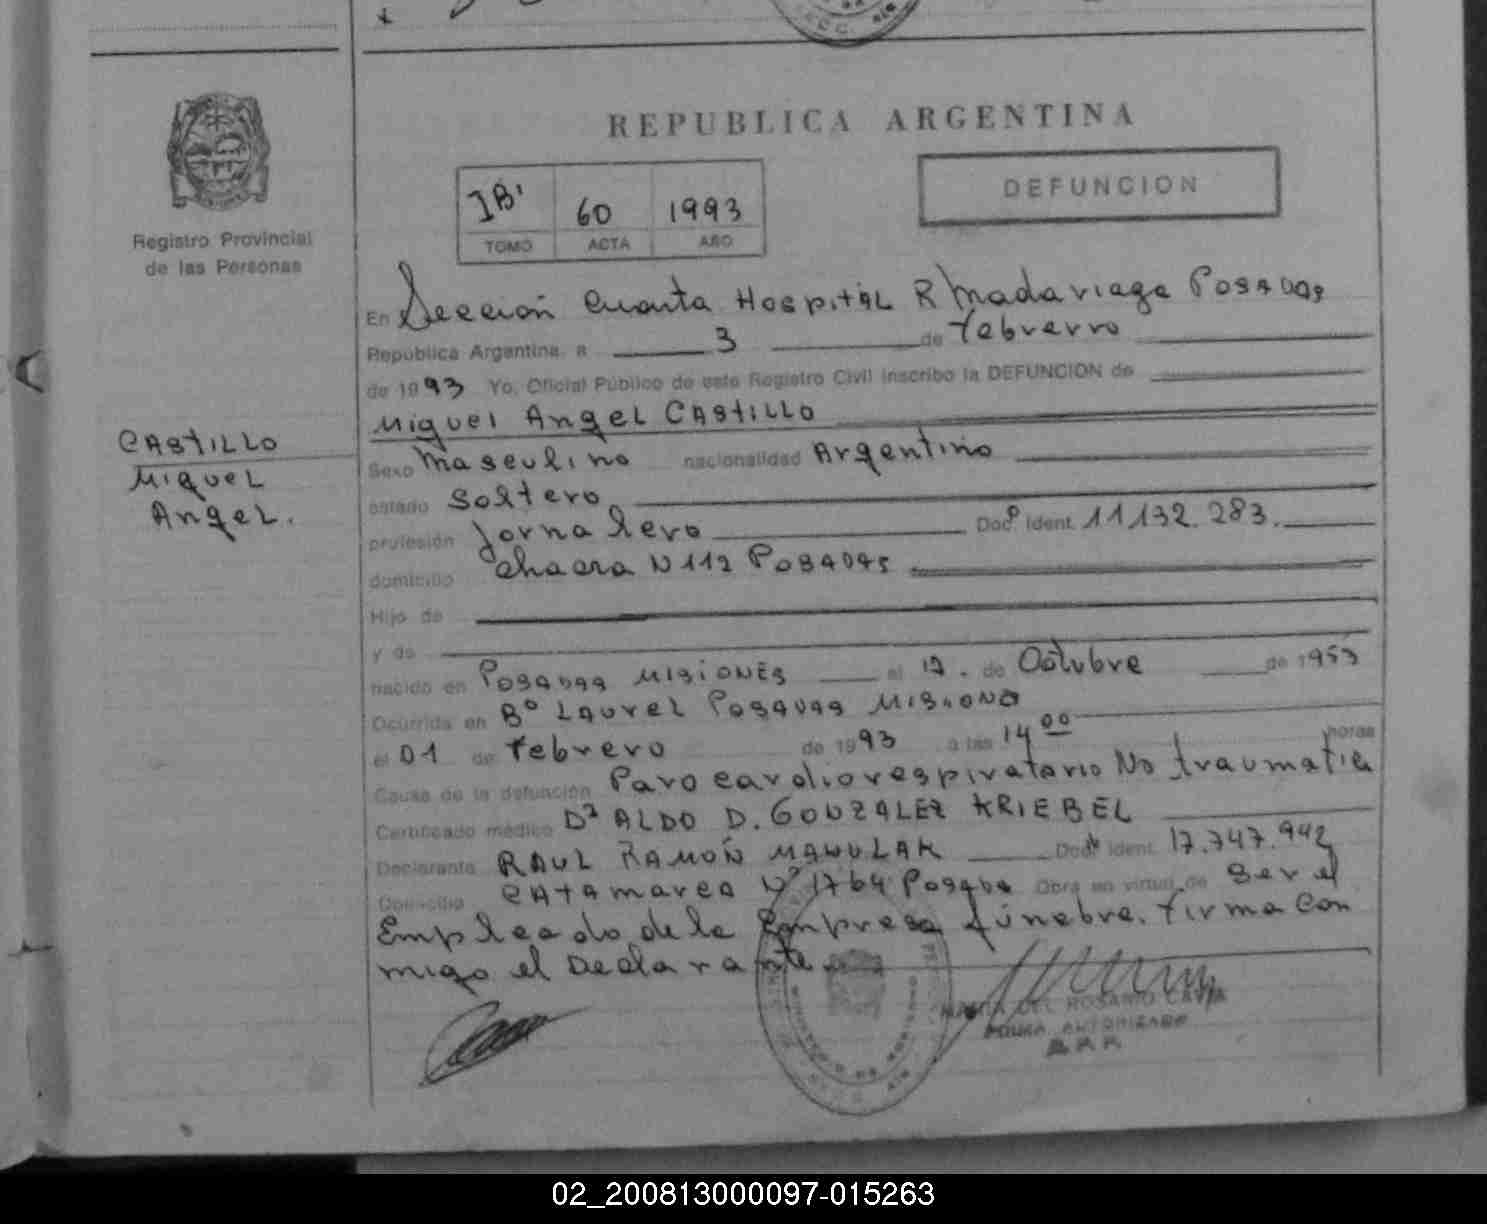 REPUBLICA ARGENTINA
DEFUNCION
60 1993
TOMO ACTA AÑO
Registro Provincial
de las Personas
En Sección Cuarta Hospital R Madariaga Posadas
República Argentina, a 3 de Febrerro
de 1993 Yo, Oficial Público de este Registro Civil inscribo la DEFUNCION de
Miguel Angel CAStILLO
CAStILLO
Miguel
Angel.
Sexo Masculino nacionalidad Argentino
estado Soltero
profesión Jornalero Doc. Ident. 11132.283.
domicilio Chacra N 112 Posadas
Hijo de
y de
nacido en Posadas Misiones el 17. de Octubre de 1953
Ocurrida en B° LAUREL Posadas
el 01 de Febrero de 1993 a las 14 00 horas
Causa de la defunción Paro cardiorespiratorio No traumatic
Certificado médico ALDO D. GONZALEZ KRIEBEL
Declarante RAUL RAMOÑ MAWULAK Doc. Ident. 17.747.942
Domicilio CAtAmarca N° 1764 Posadas Obra en virtud de Ser el
Empleado de la Empresa fúnebre. Firma Con
migo el Declarante
MARIA DEL ROSARIO CAVIA
02_200813000097-015263